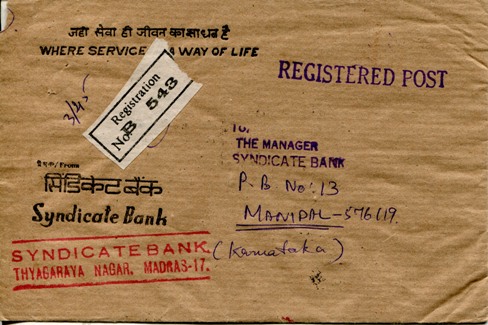 जहाँ सेवा ही जीवन का साधन है
WHERE SERVICE A WAY OF LIFE
REGISTERED POST
Registration
No. B 543
To,
THE MANAGER
SYNDICATE BANK
P.B No: 13
MANIPAL-576119.
(Karnataka)
प्रेषक/From
सिंडिकेट बैंक
Syndicate Bank
SYNDICATE BANK,
THYAGARAYA NAGAR, MADRAS-17.